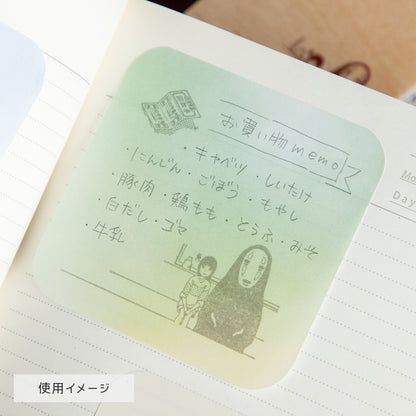 お買い物memo
・キャベツ・しいたけ
・にんじん・ごぼう・もやし
・豚肉・鶏もも・とうふ・みそ
・白だし・ゴマ
・牛乳
Mo
Day
使用イメージ